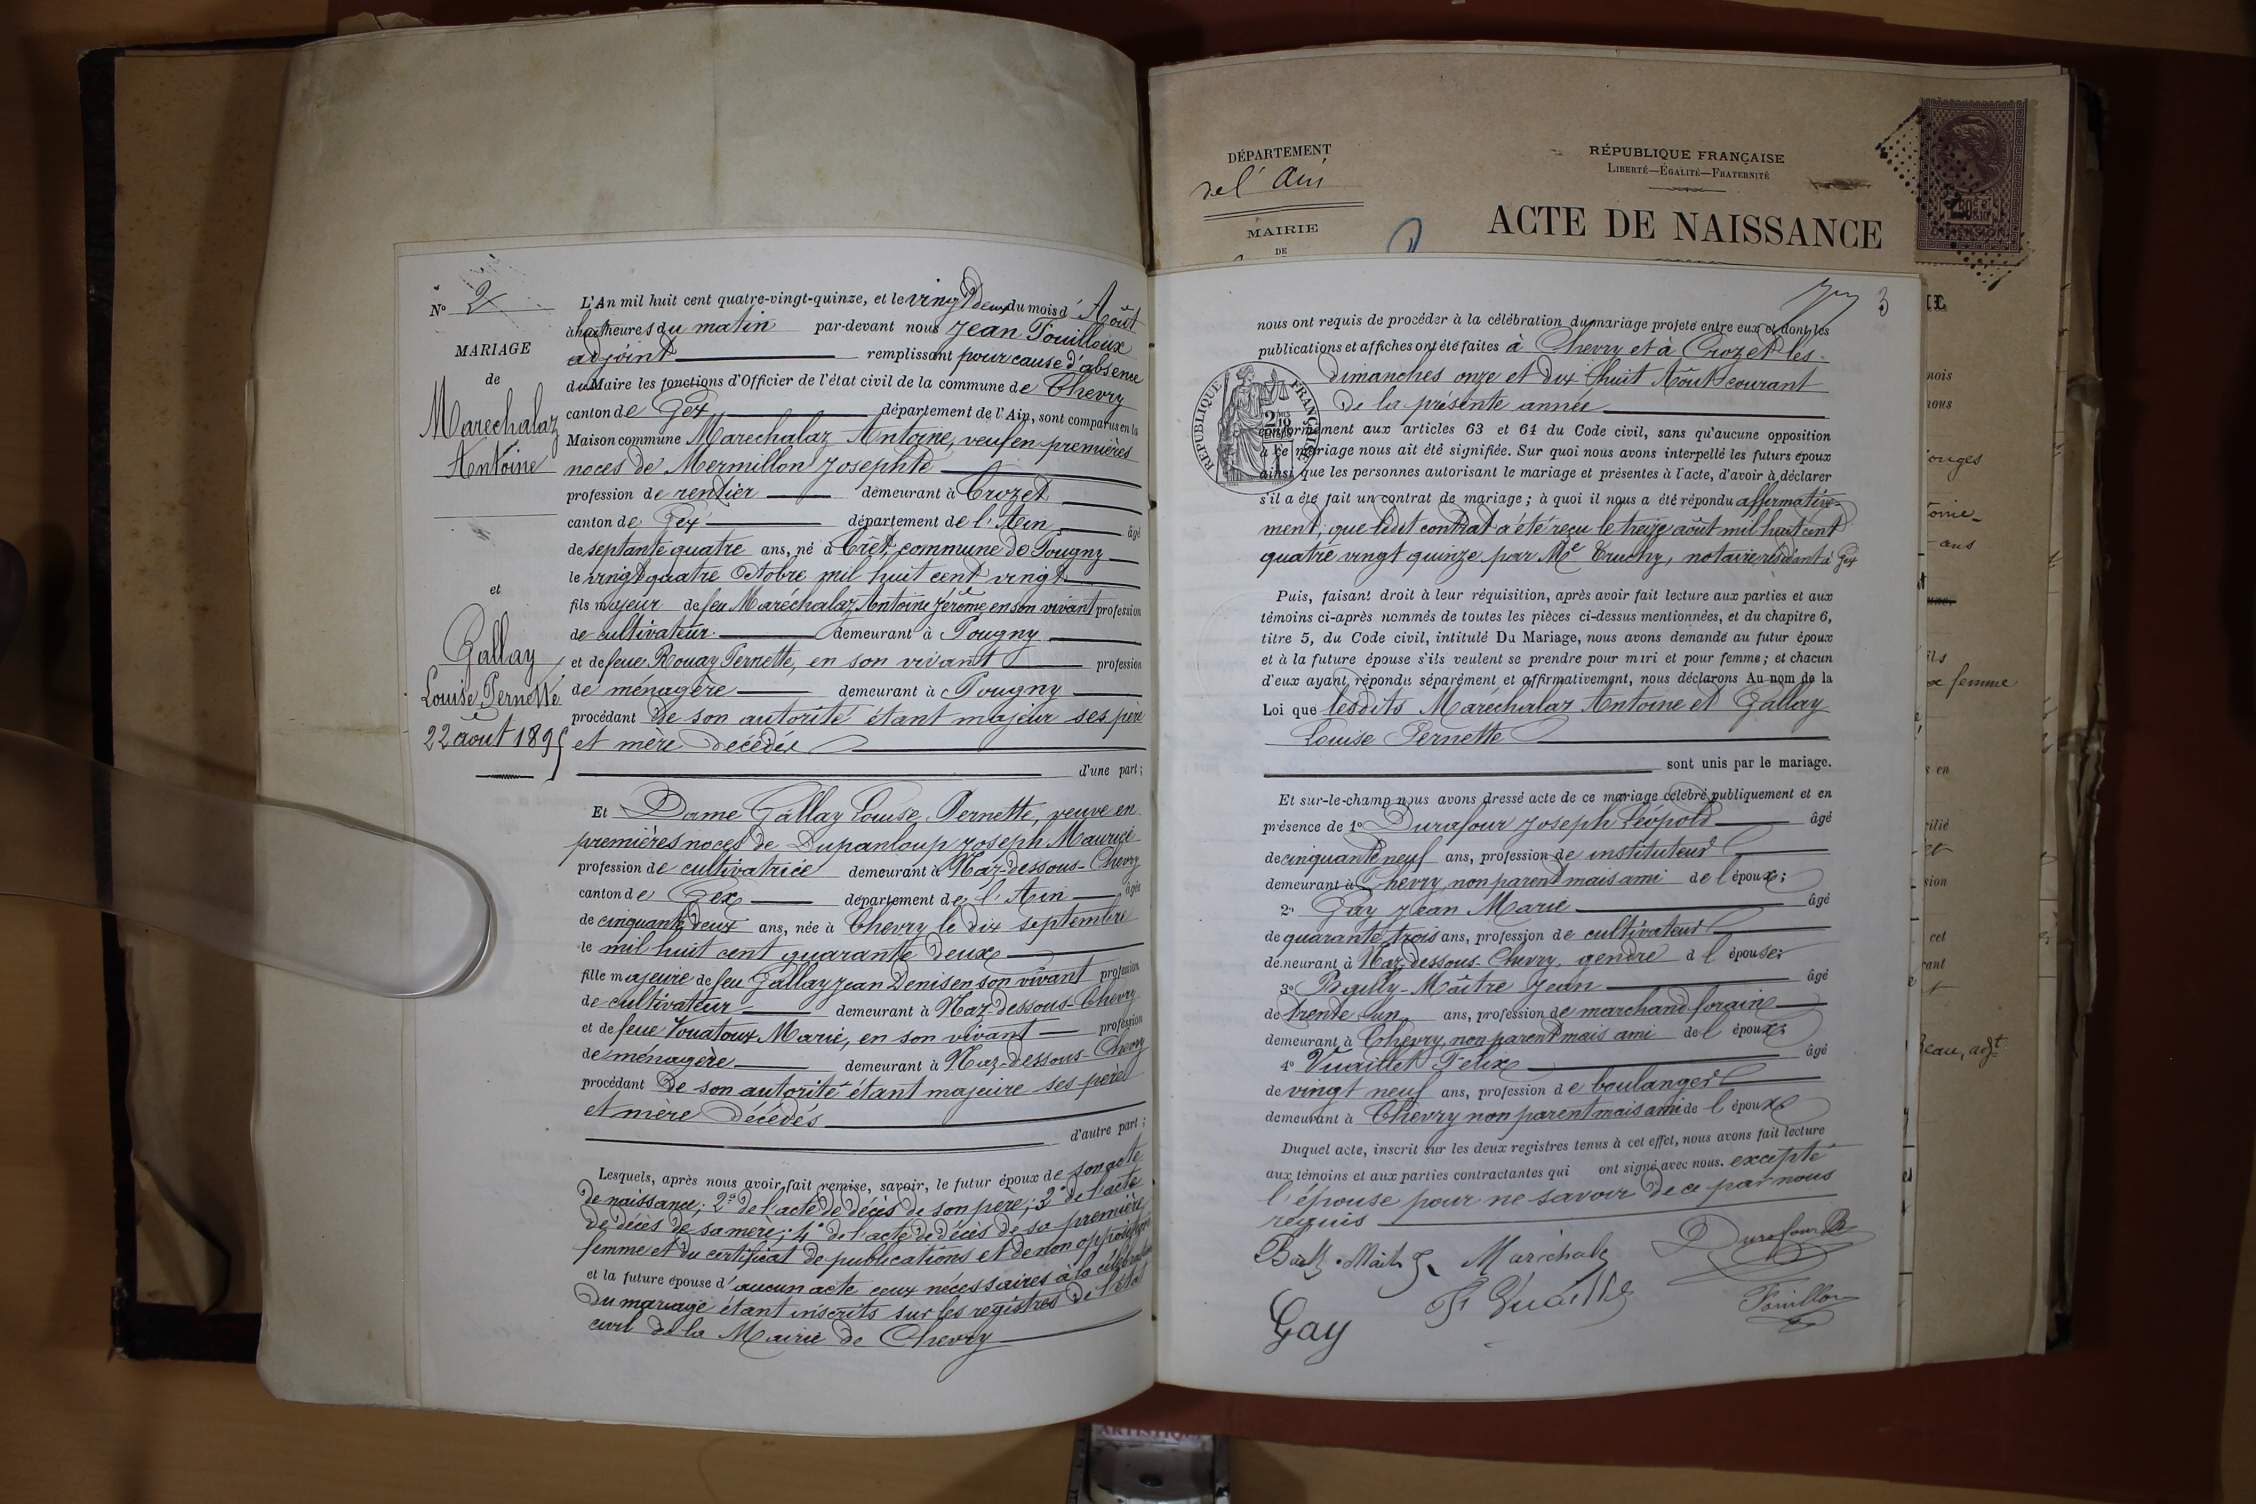 N° 2
MARIAGE
de
Marechalaz
Antoine
et
Gallay
Louise Pernette
22 août 1895
L'An mil huit cent quatre-vingt-quinze, et le vingt deux du mois d'Août
à huit heures du matin par-devant nous Jean Fouilloux
adjoint remplissant pour cause d'absence
du Maire les fonctions d'Officier de l'état civil de la commune de Chevry
canton de Gex département de l'Ain, sont comparus en la
Maison commune Marechalaz Antoine, veuf en premières
noces de Mermillon Josephte
profession de rentier demeurant à Crozet
canton de Gex département de l'Ain âgé
de septante quatre ans, né à Crêt, commune de Pougny
le vingt quatre Octobre mil huit cent vingt
fils majeur de feu Maréchalaz Antoine Jérome, en son vivant profession
de cultivateur demeurant à Pougny
et de feue Rouay Pernette, en son vivant profession
de ménagère demeurant à Pougny
procédant de son autorité étant majeur ses père
et mère décédés
d'une part;
Et Dame Gallay Louise Pernette, veuve en
premières noces de Dupanloup Joseph Maurice
profession de cultivatrice demeurant à Naz-dessous-Chevry
canton de Gex département de l'Ain âgée
de cinquante deux ans, née à Chevry le dix septembre
le mil huit cent quarante deux
fille majeure de feu Gallay Jean Denis en son vivant profession
de cultivateur demeurant à Naz-dessous-Chevry
et de feue Vouatoux Marie, en son vivant profession
de ménagère demeurant à Naz-dessous-Chevry
procédant de son autorité étant majeure ses père
et mère décédés
d'autre part;
Lesquels, après nous avoir fait remise, savoir, le futur époux de son acte
de naissance; 2° de l'acte de décès de son père; 3° de l'acte
de décès de sa mère; 4° de l'acte de décès de sa première
femme et du certificat de publications et de non opposition
et la future épouse d'aucun acte ceux nécessaires à la célébration
du mariage étant inscrits sur les registres de l'état
civil de la Mairie de Chevry
DÉPARTEMENT
de l'Ain
MAIRIE
DE
RÉPUBLIQUE FRANÇAISE
LIBERTÉ—ÉGALITÉ—FRATERNITÉ
ACTE DE NAISSANCE
3
nous ont requis de procéder à la célébration du mariage projeté entre eux et dont les
publications et affiches ont été faites à Chevry et à Crozet les
dimanches onze et dix huit Août courant
de la présente année
RÉPUBLIQUE FRANÇAISE
conformément aux articles 63 et 64 du Code civil, sans qu'aucune opposition
à ce mariage nous ait été signifiée. Sur quoi nous avons interpellé les futurs époux
ainsi que les personnes autorisant le mariage et présentes à l'acte, d'avoir à déclarer
s'il a été fait un contrat de mariage; à quoi il nous a été répondu affirmative-
ment, que ledit contrat a été reçu le treize août mil huit cent
quatre vingt quinze par Me Truchy, notaire résidant à Gex
Puis, faisant droit à leur réquisition, après avoir fait lecture aux parties et aux
témoins ci-après nommés de toutes les pièces ci-dessus mentionnées, et du chapitre 6,
titre 5, du Code civil, intitulé Du Mariage, nous avons demandé au futur époux
et à la future épouse s'ils veulent se prendre pour mari et pour femme; et chacun
d'eux ayant répondu séparément et affirmativement, nous déclarons Au nom de la
Loi que lesdits Maréchalaz Antoine et Gallay
Louise Pernette
sont unis par le mariage.
Et sur-le-champ nous avons dressé acte de ce mariage célébré publiquement et en
présence de 1° Durafour Joseph Léopold âgé
de cinquante neuf ans, profession de instituteur
demeurant à Chevry, non parent mais ami de l'époux;
2° Gay Jean Marie âgé
de quarante trois ans, profession de cultivateur
demeurant à Naz-dessous-Chevry, gendre d l'épouse;
3° Bailly-Maître Jean âgé
de trente un ans, profession de marchand forain
demeurant à Chevry, non parent mais ami de l'époux;
4° Vuaillet Félix âgé
de vingt neuf ans, profession de boulanger
demeurant à Chevry non parent mais ami de l'époux
Duquel acte, inscrit sur les deux registres tenus à cet effet, nous avons fait lecture
aux témoins et aux parties contractantes qui ont signé avec nous. excepté
l'épouse pour ne savoir de ce par nous
requis
Marechalz
Durafour
Gay
Fouilloux